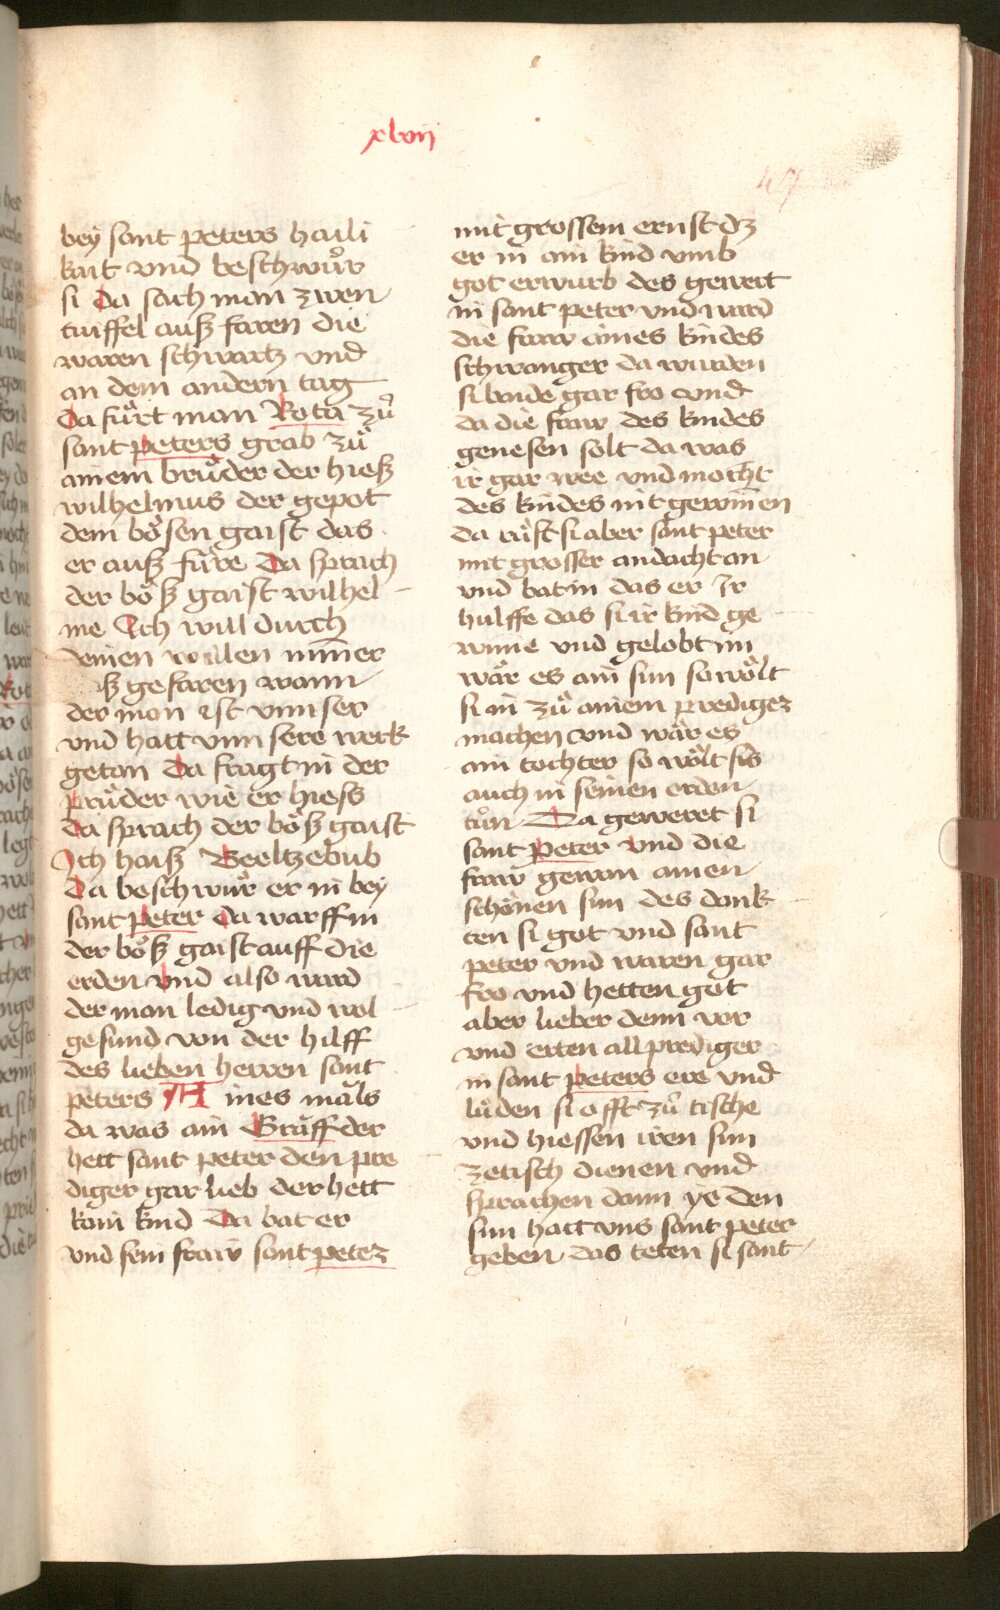 xlvij
47
bey sant peters haili
kait vnd beschwůr
si Da sach man zwen
tuiffel auß faren die
waren schwartz vnd
an dem andern tag
Da fůrt man Rota zů
sant peters grab zů
ainem brůder der hieß
wilhelmus der gepot
dem bösen gaist das
er auß füre Da sprach
der böß gaist wilhel
me Ich will durch
deinen willen nim̄er
ß gefaren wann
der man ist vnnser
vnd hatt vnnsere werk
getan Da fragt in der
průder wie er hiess
Da sprach der böß gaist
Ich haiß Beeltzebub
Da beschwůr er in bey
sant peter Da warff in
der böß gaist auff die
erden vnd also ward
der man ledig vnd wol
gesund von der hilff
des lieben herren sant
peters A ines mäls
da was ain Gräff der
hett sant peter den pre
diger gar lieb der hett
kain kind Da bat er
vnd sein fraw sant peter
mit grossem ernst dz
er in ain kind vmb
got erwurb des gewert
in sant peter vnd ward
die fraw aines kindes
schwanger da wurden
si baide gar fro vnd
da die fraw des kindes
genesen solt da was
ir gar wee vnd mocht
des kindes nit gewin̄en
da růft si aber sant peter
mit grosser andacht an
vnd bat in das er Ir
hulffe das si ir kind ge
winne vnd gelobt im
wär es ain sun so wölt
si in zů ainem prediger
machen vnd wär es
ain tochter so wölt sis
auch in seinen orden
tůn Da geweret si
sant Peter vnd die
fraw gewan ainen
schönen sun des dank
ten si got vnd sant
peter vnd waren gar
fro vnd hetten got
aber lieber denn vor
vnd erten all prediger
in sant peters ere vnd
lůden si offt zů tische
vnd hiessen iren sun
ze tisch dienen vnd
sprachen dann ye den
sun hatt vns sant peter
geben das teten si sant